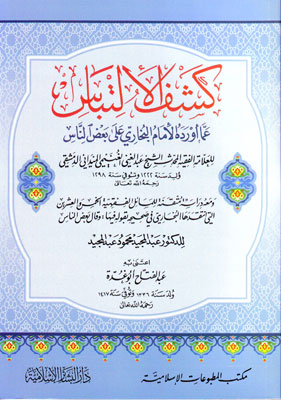 كشف الالتباس
عما أورده الإمام البخاري على بعض الناس
للعلامة الفقيه المحدث الشيخ عبد الغني الغنيمي الميداني الدمشقي
ولد سنة ١٢٢٢ وتوفي سنة ١٢٩٨
رحمه الله تعالى
ومعه دراسات متقنة للمسائل الفقهية الخمس والعشرين
التي انتقدها البخاري في صحيحه بقوله فيها: وقال بعض الناس
للدكتور عبد المجيد محمود عبد المجيد
اعتنى به
عبد الفتاح أبو غدة
ولد سنة ١٣٣٦ وتوفي سنة ١٤١٧
رحمه الله تعالى
مكتب المطبوعات الإسلامية
دار البشائر الإسلامية